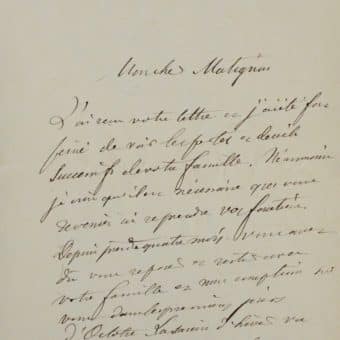 Mon cher Matignon
J'ai reçu votre lettre et j'ai été fort
peiné de voir les pertes et deuils
successifs de votre famille. Néanmoins
je crois qu'il est nécessaire que vous
reveniez ici reprendre vos fonctions.
Depuis près de quatre mois vous avez
dû vous reposer et rester avec
votre famille et nous comptons sur
vous dans les premiers jours
d'Octobre La saison d'hiver va